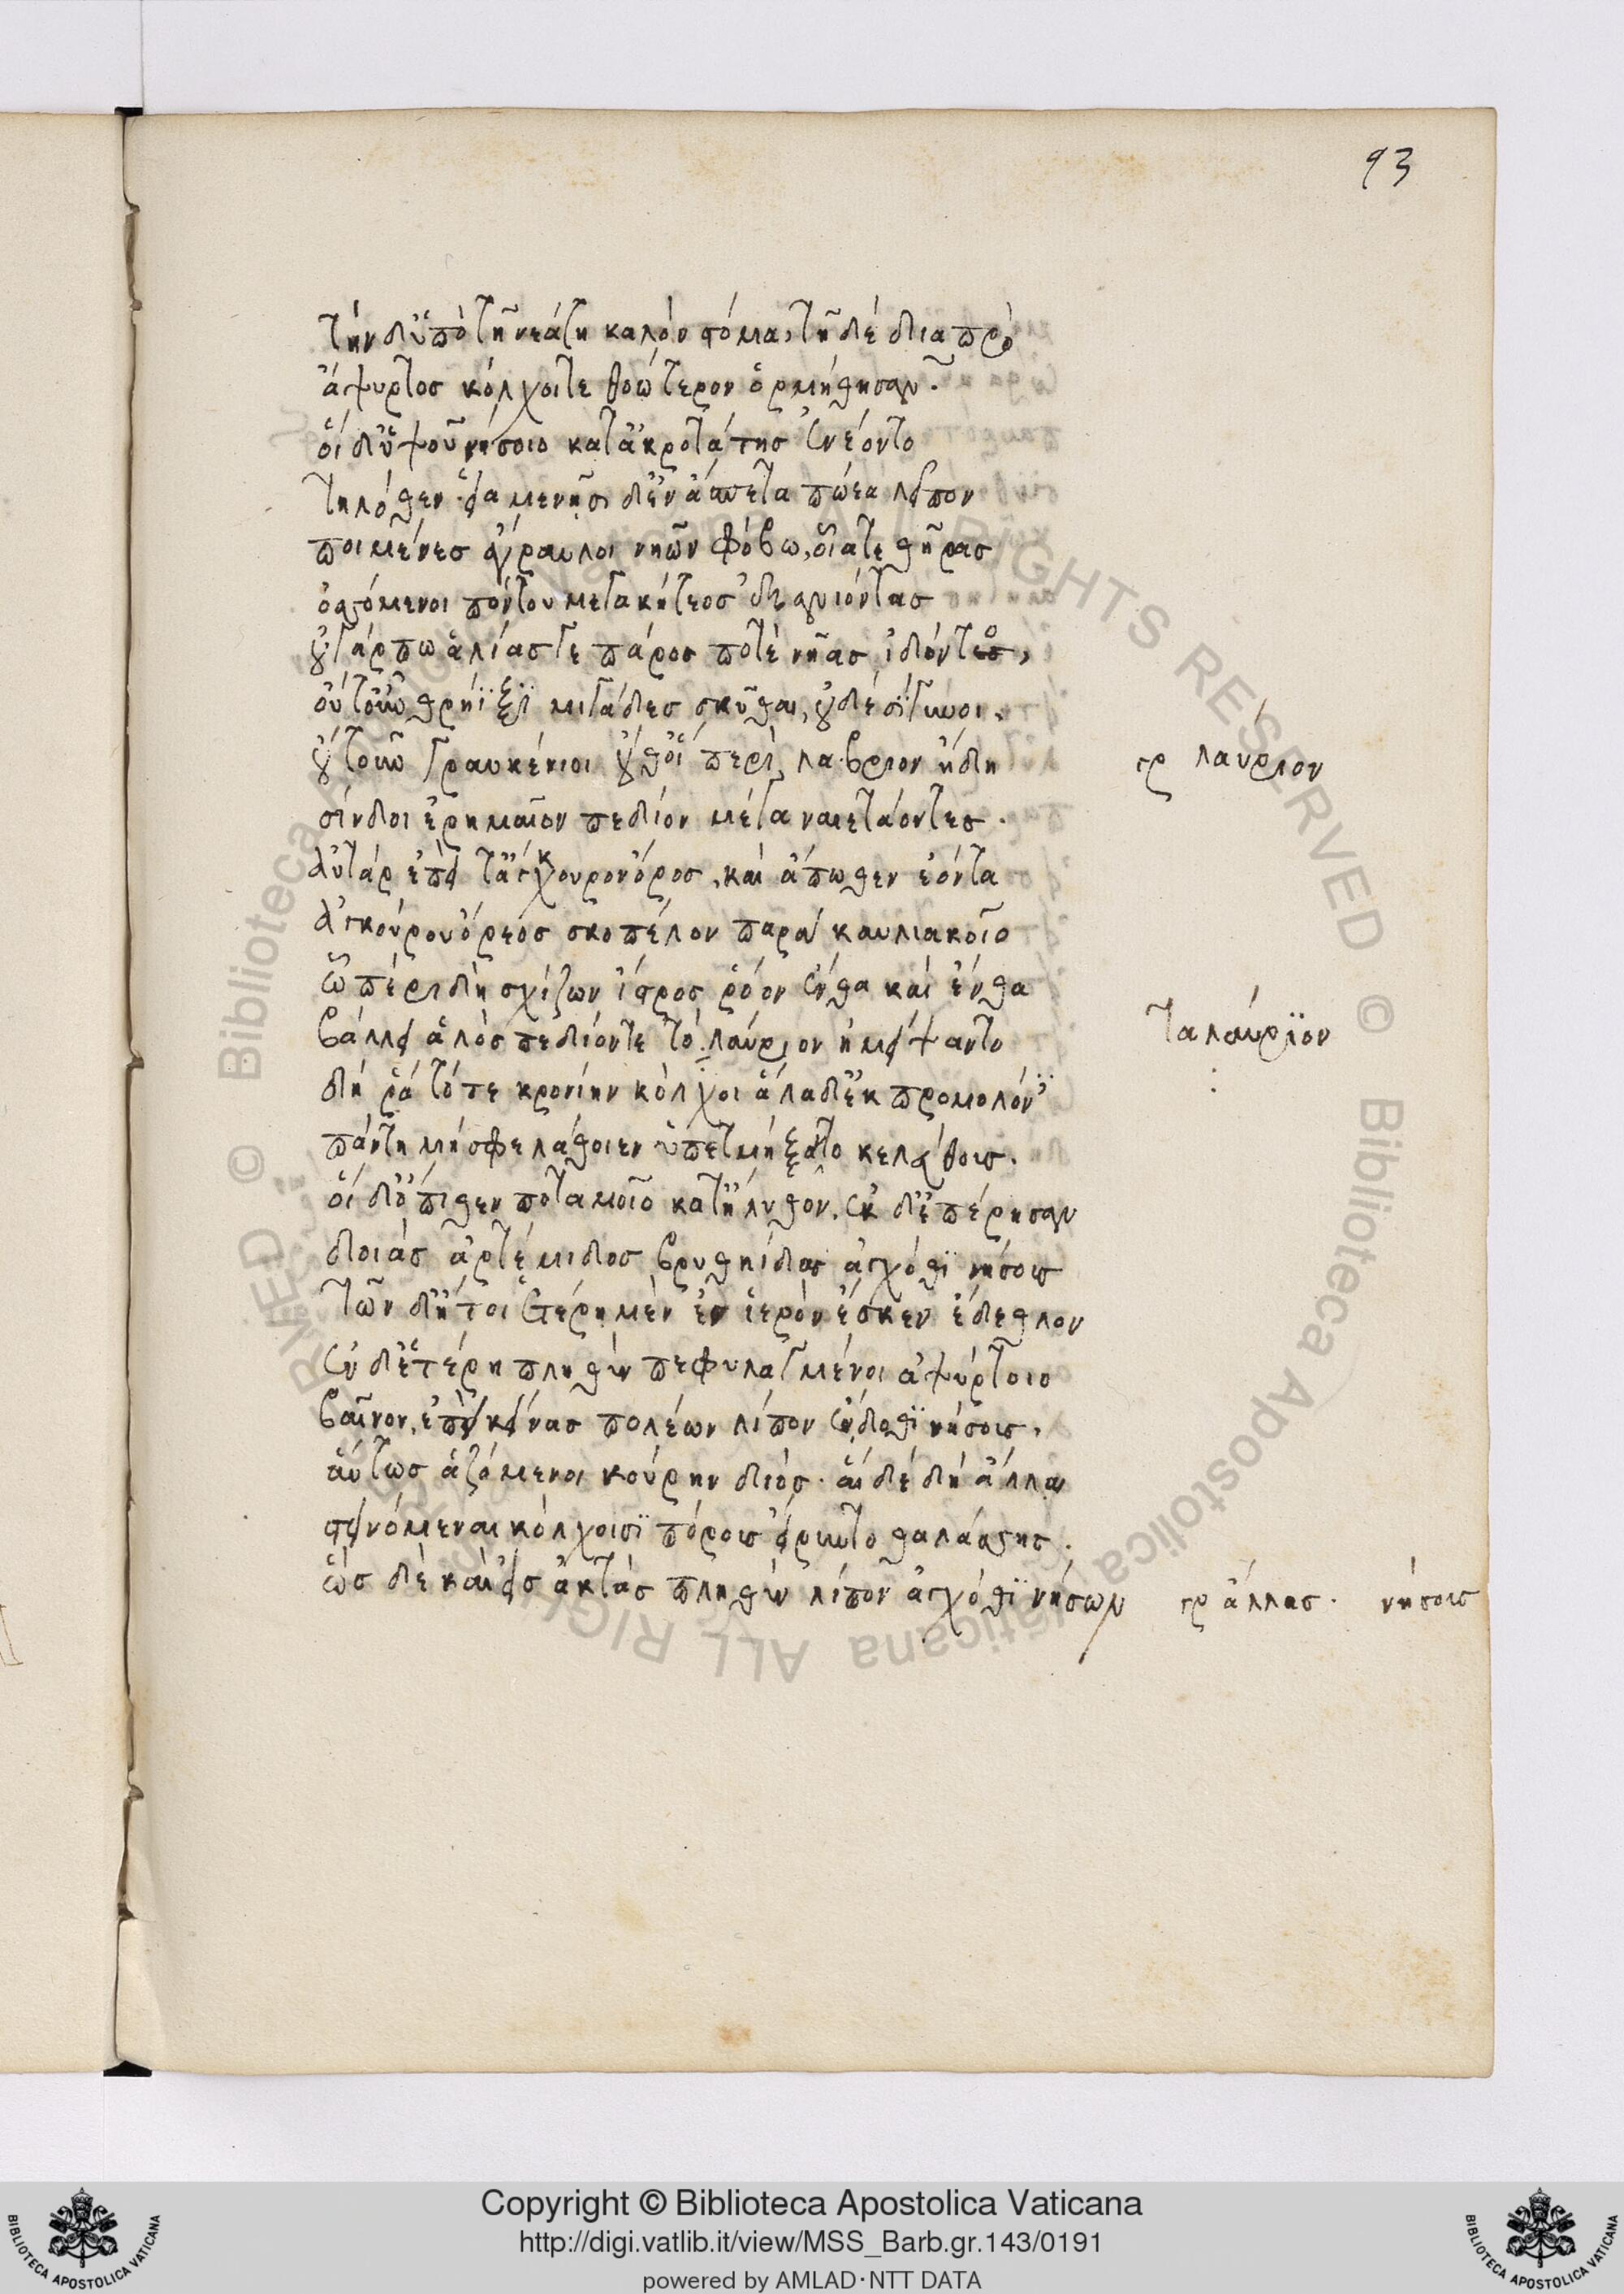 93
τὴν δ' ὑπὸ τῇ νεάτῃ καλὸν στόμα, τῇ δὲ διαπρὸ
ἄψυρτος κόλχοί τε θοώτερον ὁρμήθησαν.
οἱ δ' ὑψοῦ νήσοιο κατ' ἀκροτάτης ἐνέοντο
τηλόθεν. εἱαμενῇσι δ' ἐν ἄσπετα πώεα λεῖπον
ποιμένες ἄγραυλοι νηῶν φόβω, οἷά τε θῆρας
ὀσσόμενοι πόντου μεγακήτεος ἐξανιόντας
οὐ γάρ πω ἁλίας γε πάρος ποτὲ νῆας ἰδόντες,
οὔτ' οὖν θρήϊξϊ μιγάδες σκύθαι, οὐδὲ σίγυνοι.
οὔτ' οὖν γραυκένιοι οὔθ' οἱ περὶ λαβριον ἤδη
γρ λαύριον
σίνδοι ἐρημαῖον πεδίον μέγα ναιετάοντες.
αὐτὰρ ἐπεὶ τ' ἄγχουρον ὄρος, καὶ ἄπωθεν ἐόντα
ἀγκούρου ὄρεος σκοπέλον παρὰ καυλιακοῖο
ᾧ πέρι δὴ σχίζων ἴστρος ῥόον ἔνθα καὶ ἔνθα
βάλλει ἁλὸς πεδίον τε τὸ λαύριον ἠμείψαντο
ταλαύρϊον
δή ῥα τότε κρονίην κόλχοι ἅλαδ' ἐκπρομολόντες
πάντη μή σφε λάθοιεν ὑπετμήξαντο κελεύθοις.
οἱ δ' ὄπιθεν ποταμοῖο κατήλυθον. ἐκ δ' ἐπέρησαν
δοιὰς ἀρτέμιδος βρυγηίδας ἀγχόθϊ νήσους
τῶν δή τοι ἑτέρη μὲν ἐν ἱερὸν ἔσκεν ἔδεθλον
ἐν δ' ἑτέρη πληθὺν πεφυλαγμένοι ἀψύρτοιο
βαῖνον, ἐπεὶ κείνας πολέων λίπον ἔνδοθϊ νήσους,
αὔτως ἁζόμενοι κούρην διός. αἱ δὲ δὴ ἄλλαι
στεινόμεναι κόλχοισϊ πόρους εἴρυντο θαλάσσης.
ὣς δὲ καὶ εἰς ἀκτὰς πληθὺν λίπον ἀγχόθϊ νήσων
γρ ἄλλας. νήσους
Copyright © Biblioteca Apostolica Vaticana
http://digi.vatlib.it/view/MSS_Barb.gr.143/0191
powered by AMLAD·NTT DATA